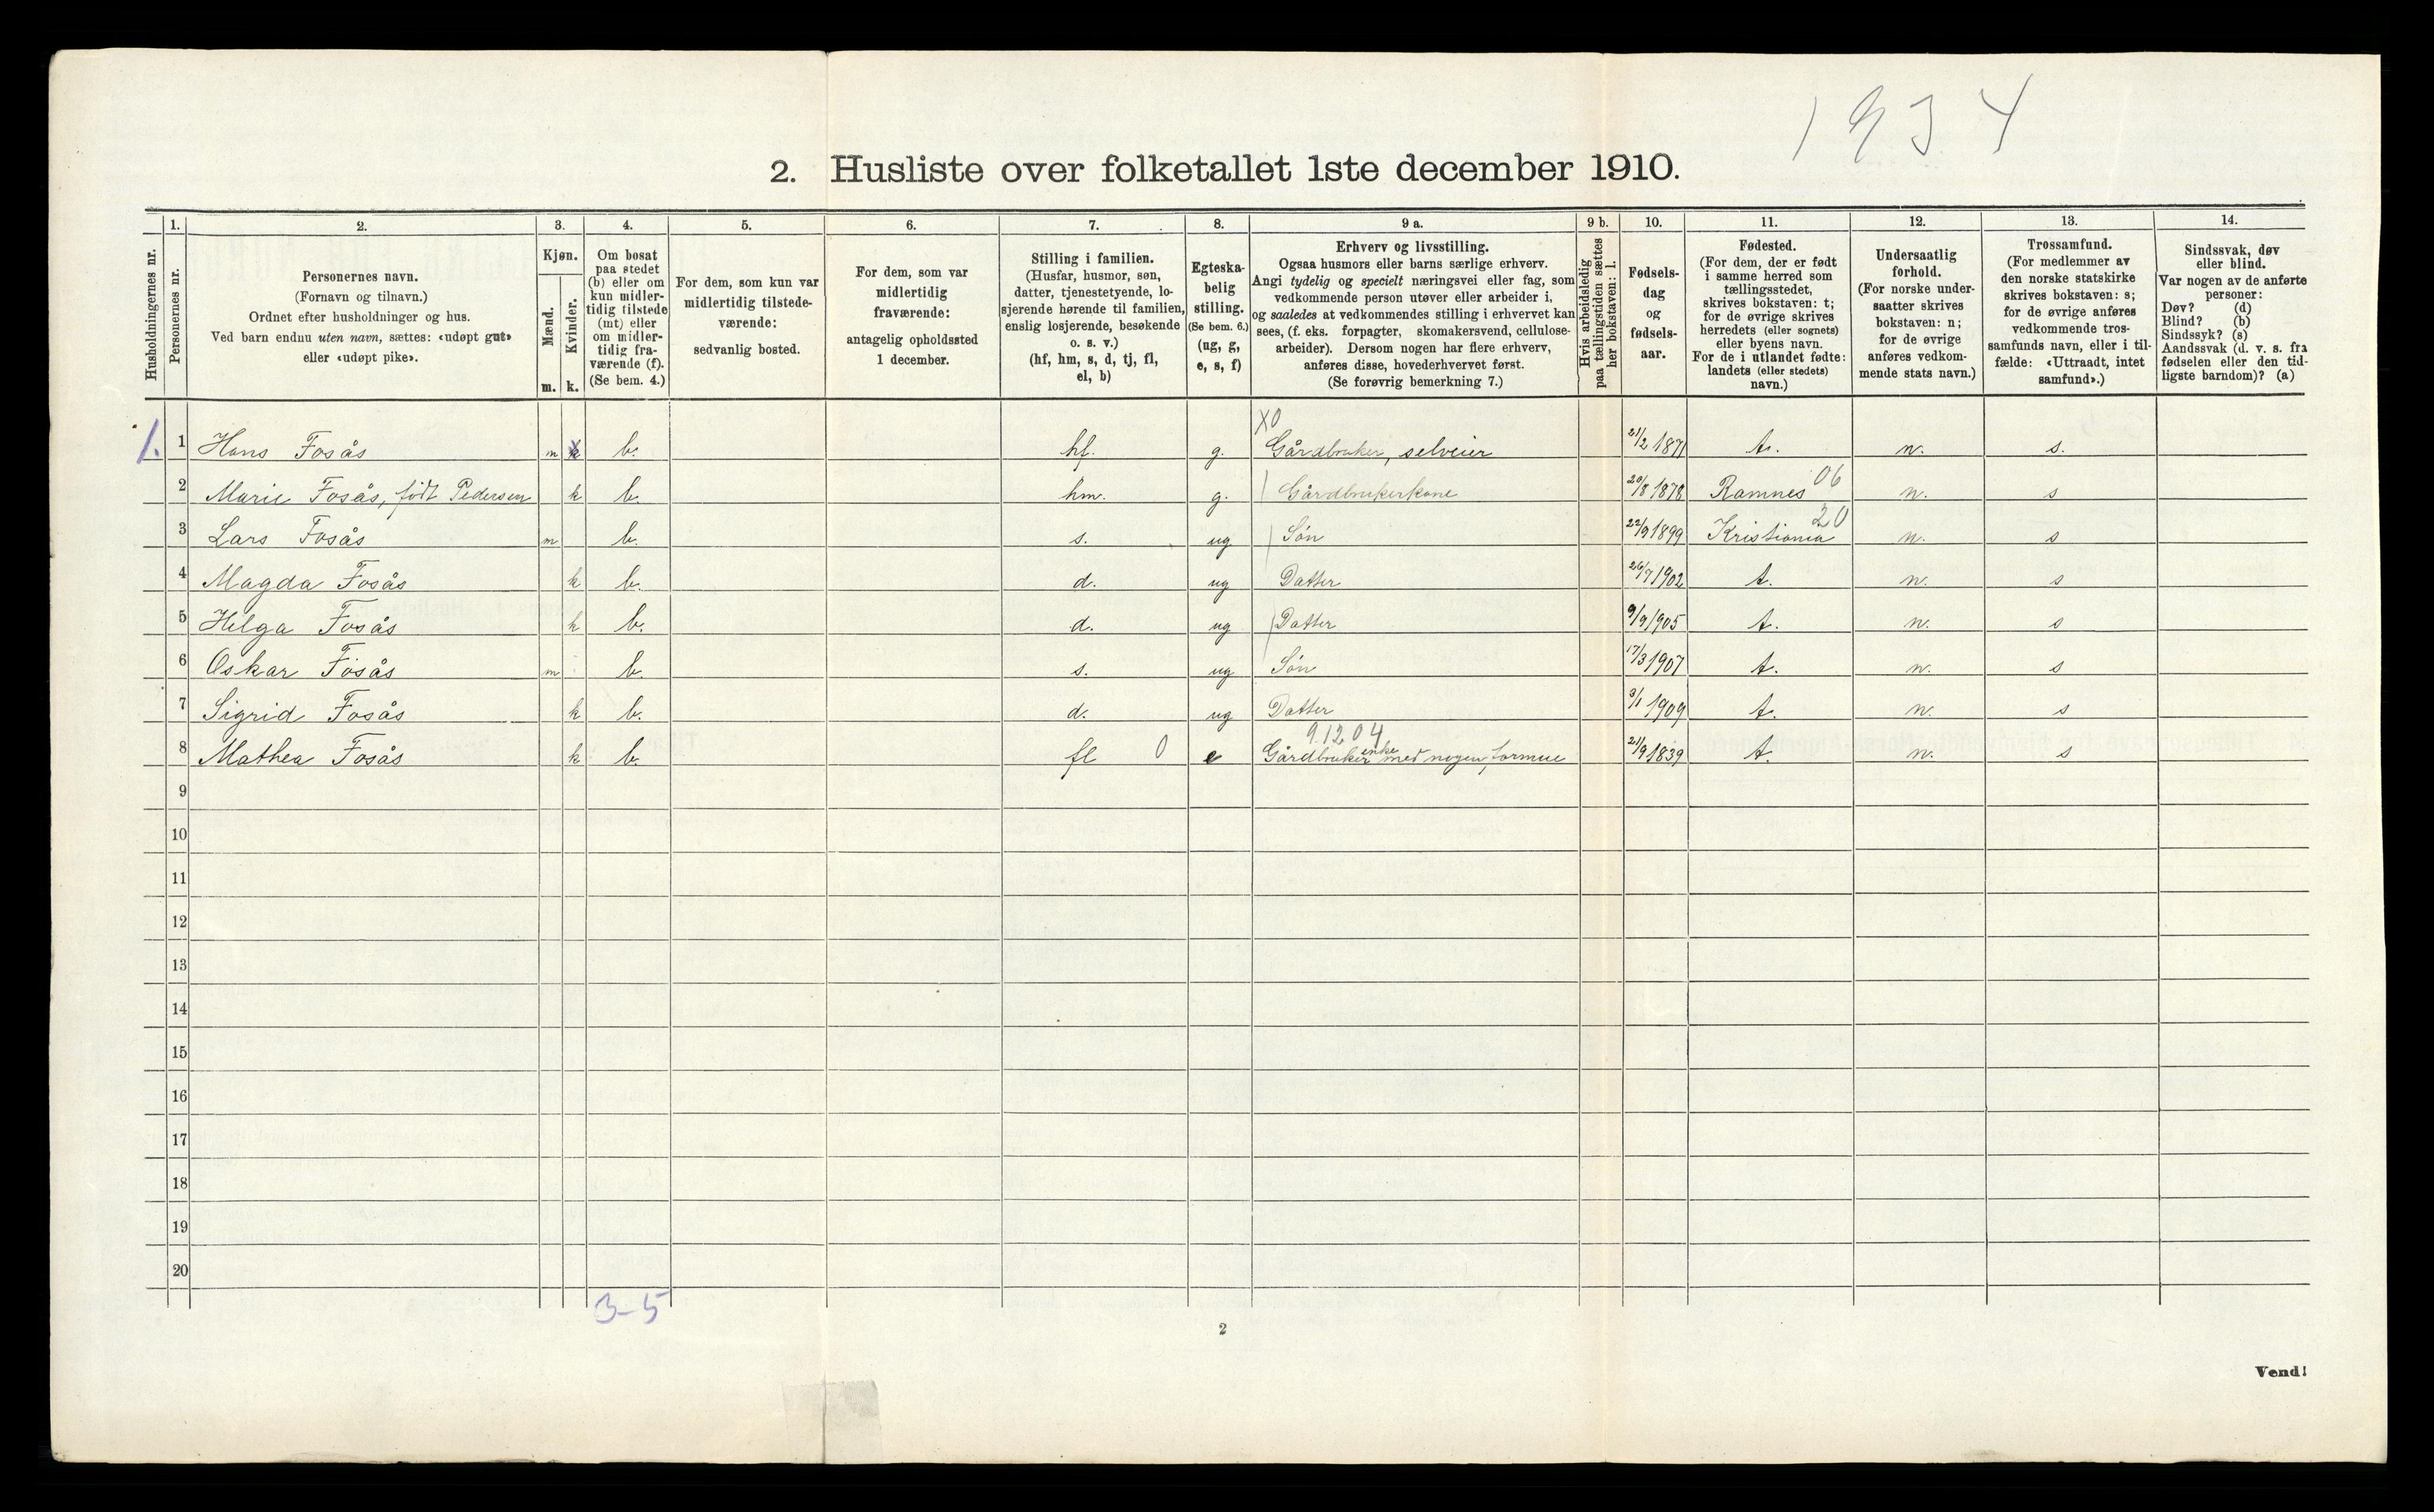 1934
2. Husliste over folketallet 1ste december 1910.
Husholdningernes nr.
1.
Personernes nr.
2.
Personernes navn.
(Fornavn og tilnavn.)
Ordnet efter husholdninger og hus.
Ved barn endnu uten navn, sættes: «udøpt gut»
eller «udøpt pike».
3.
Kjøn.
Mænd.
m.
Kvinder.
k.
4.
Om bosat
paa stedet
(b) eller om
kun midler-
tidig tilstede
(mt) eller
om midler-
tidig fra-
værende (f).
(Se bem. 4.)
5.
For dem, som kun var
midlertidig tilstede-
værende:
sedvanlig bosted.
6.
For dem, som var
midlertidig
fraværende:
antagelig opholdssted
1 december.
7.
Stilling i familien.
(Husfar, husmor, søn,
datter, tjenestetyende, lo-
sjerende hørende til familien,
enslig losjerende, besøkende
o. s. v.)
(hf, hm, s, d, tj, fl,
el, b)
8.
Egteska-
belig
stilling.
(Se bem. 6.)
(ug, g,
e, s, f)
9 a.
Erhverv og livsstilling.
Ogsaa husmors eller barns særlige erhverv.
Angi tydelig og specielt næringsvei eller fag, som
vedkommende person utøver eller arbeider i,
og saaledes at vedkommendes stilling i erhvervet kan
sees, (f. eks. forpagter, skomakersvend, cellulose-
arbeider). Dersom nogen har flere erhverv,
anføres disse, hovederhvervet først.
(Se forøvrig bemerkning 7.)
9 b.
Hvis arbeidsledig
paa tællingstiden sættes
her bokstaven: l.
10.
Fødsels-
dag
og
fødsels-
aar.
11.
Fødested.
(For dem, der er født
i samme herred som
tællingsstedet,
skrives bokstaven: t;
for de øvrige skrives
herredets (eller sognets)
eller byens navn.
For de i utlandet fødte:
landets (eller stedets)
navn.)
12.
Undersaatlig
forhold.
(For norske under-
saatter skrives
bokstaven: n;
for de øvrige
anføres vedkom-
mende stats navn.)
13.
Trossamfund.
(For medlemmer av
den norske statskirke
skrives bokstaven: s;
for de øvrige anføres
vedkommende tros-
samfunds navn, eller i til-
fælde: «Uttraadt, intet
samfund».)
14.
Sindssvak, døv
eller blind.
Var nogen av de anførte
personer:
Døv? (d)
Blind? (b)
Sindssyk? (s)
Aandssvak (d. v. s. fra
fødselen eller den tid-
ligste barndom)? (a)
X0
1. 1 Hans Fosås m k b. hf. g. Gårdbruker, selveier 21/2 1871 t. n. s.
2 Marie Fosås, født Pedersen k b. hm. g. Gårdbrukerkone 20/8 1878 Ramnes 06 n. s
3 Lars Fosås m b. s. ug. Søn 22/9 1899 Kristiania 20 n. s
4 Magda Fosås k b. d. ug Datter 26/7 1902 t. n. s
5 Helga Fosås k b. d. ug Datter 9/9 1905 t. n. s
6 Oskar Fosås m b. s. ug Søn 17/3 1907 t. n. s
7 Sigrid Fosås k b. d. ug Datter 3/1 1909 t. n. s
9.12.04
8 Mathea Fosås k b. fl 0 e Gårdbrukerenke med nogen formue 21/9 1839 t. n. s
9
10
11
12
13
14
15
16
17
18
19
20
3-5
2
Vend!